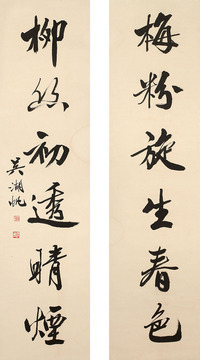 梅粉旋生春色
柳丝初透晴煙
吳湖帆